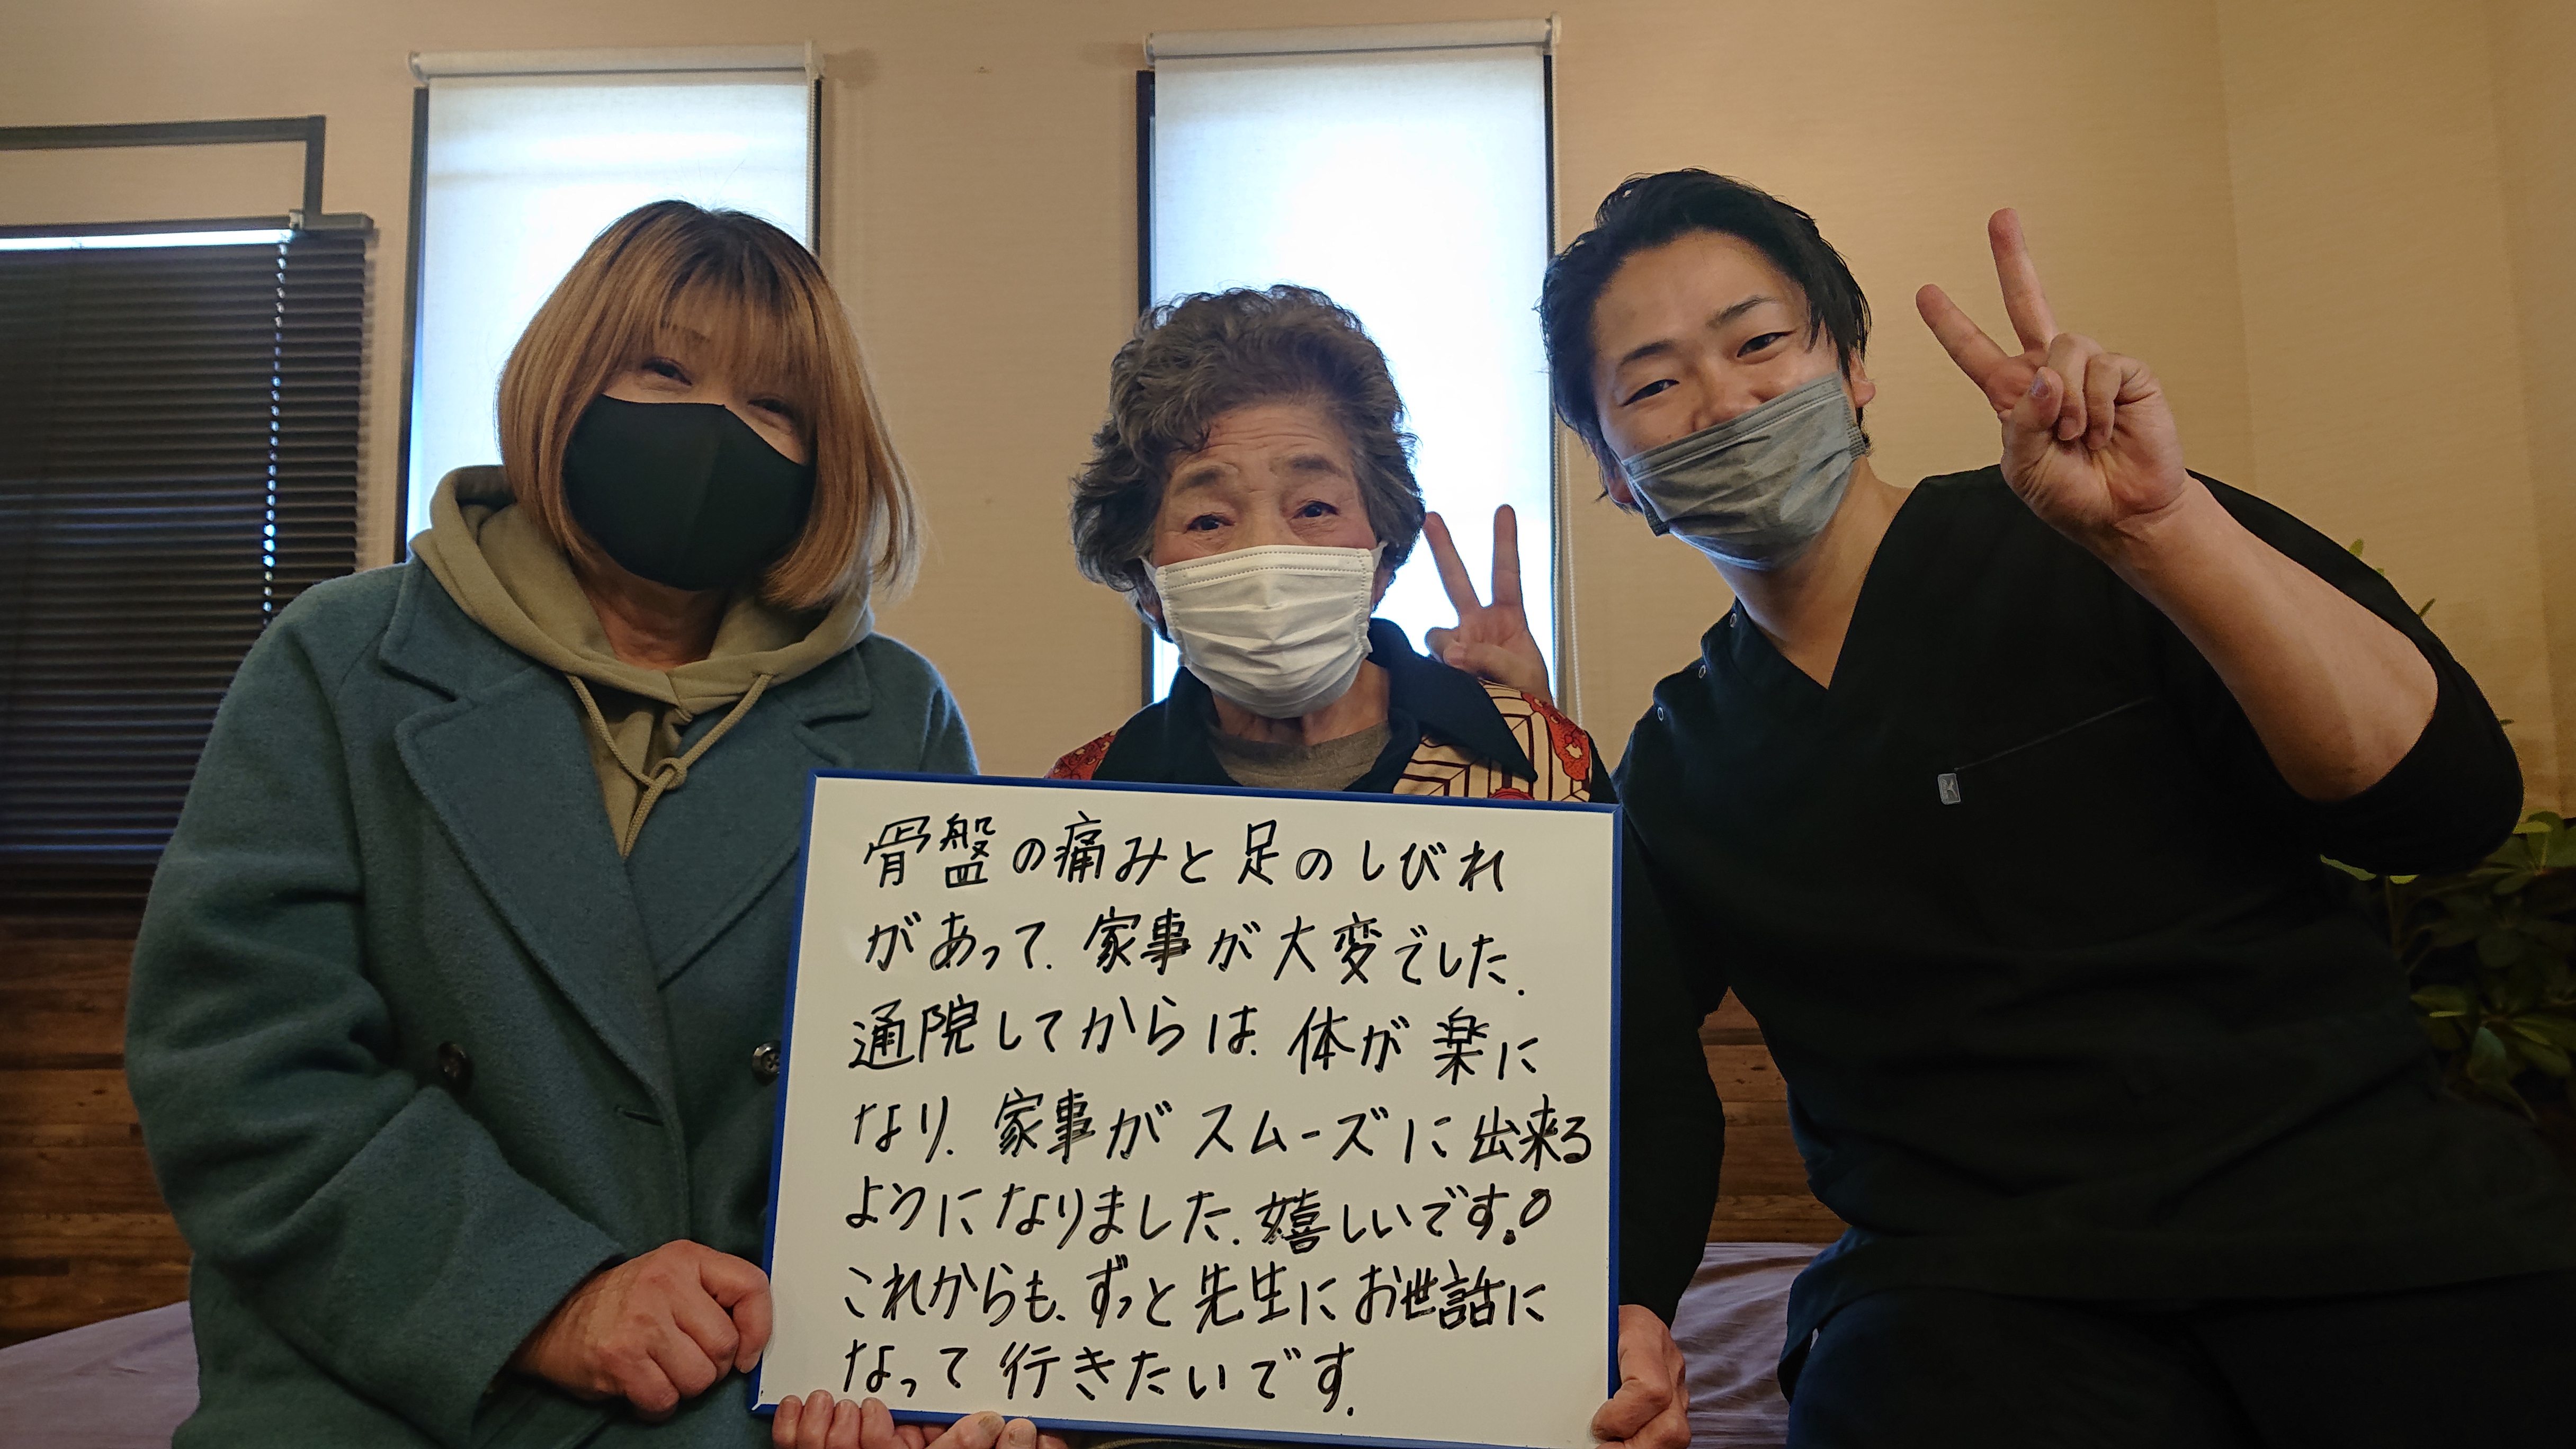 骨盤の痛みと足のしびれ
があって、家事が大変でした。
通院してからは、体が楽に
なり、家事がスムーズに出来る
ようになりました。嬉しいです!
これからも、ずっと先生にお世話に
なって行きたいです。